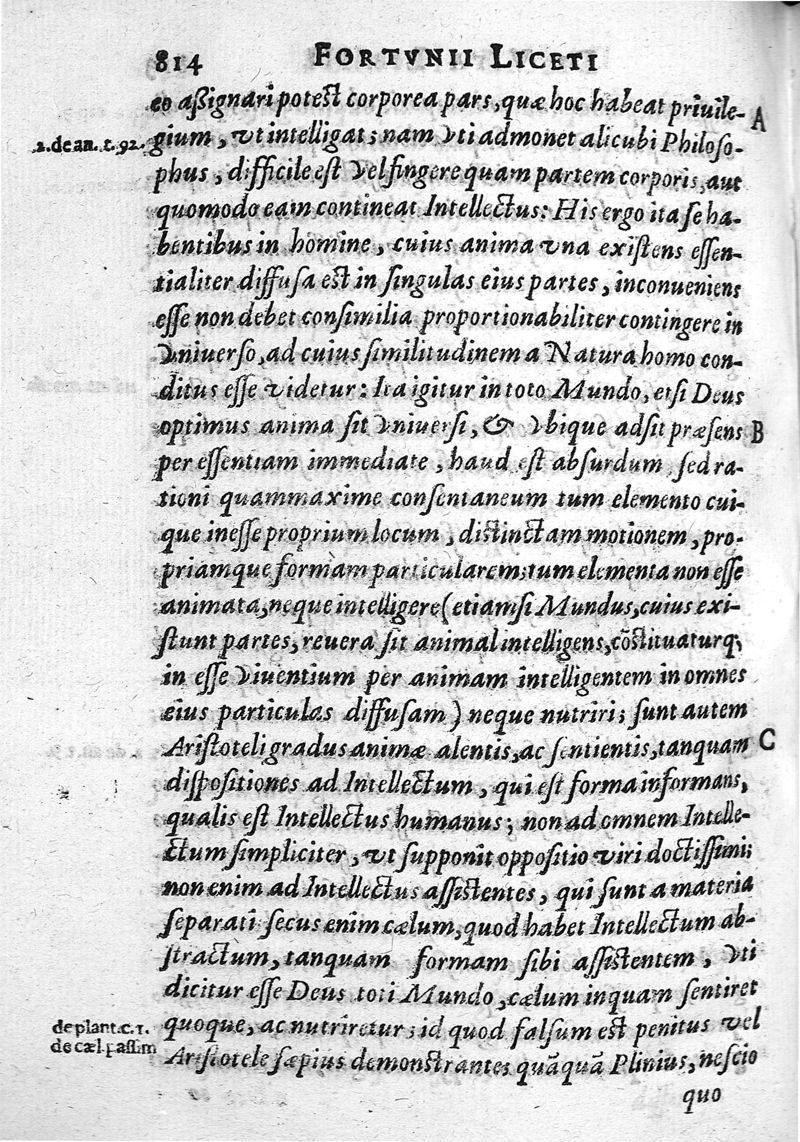 814 FORTVNII LICETI
eo aſsignari poteſt corporea pars, quæ hoc habeat priuile- A
2. de an. t. 92. gium, vt intelligat; nam vti admonet alicubi Philoſo-
phus, difficile eſt vel fingere quam partem corporis, aut
quomodo eam contineat Intellectus: His ergo ita ſe ha-
bentibus in homine, cuius anima vna exiſtens eſſen-
tialiter diffuſa eſt in ſingulas eius partes, inconueniens
eſſe non debet conſimilia proportionabiliter contingere in
vniuerſo, ad cuius ſimilitudinem a Natura homo con-
ditus eſſe videtur: Ita igitur in toto Mundo, etſi Deus
optimus anima ſit vniuerſi, & vbique adſit præſens B
per eſſentiam immediate, haud eſt abſurdum, ſed ra-
tioni quammaxime conſentaneum tum elemento cui-
que ineſſe proprium locum, diſtinctam motionem, pro-
priamque formam particularem; tum elementa non eſſe
animata, neque intelligere (etiamſi Mundus, cuius exi-
ſtunt partes, reuera ſit animal intelligens, cõſtituaturq;
in eſſe viuentium per animam intelligentem in omnes
eius particulas diffuſam) neque nutriri; ſunt autem
Ariſtoteli gradus animæ alentis, ac ſentientis, tanquam C
diſpoſitiones ad Intellectum, qui eſt forma informans,
qualis eſt Intellectus humanus; non ad omnem Intelle-
ctum ſimpliciter, vt ſupponit oppoſitio viri doctiſſimi;
non enim ad Intellectus aſſiſtentes, qui ſunt a materia
ſeparati ſecus enim cælum, quod habet Intellectum ab-
ſtractum, tanquam formam ſibi aſſiſtentem, vti
dicitur eſſe Deus toti Mundo, cælum inquam ſentiret
de plant. c. 1. quoque, ac nutriretur; id quod falſum eſt penitus vel
de cæl. paſſim Ariſtotele ſæpius demonſtrante; quãquã Plinius, neſcio
quo